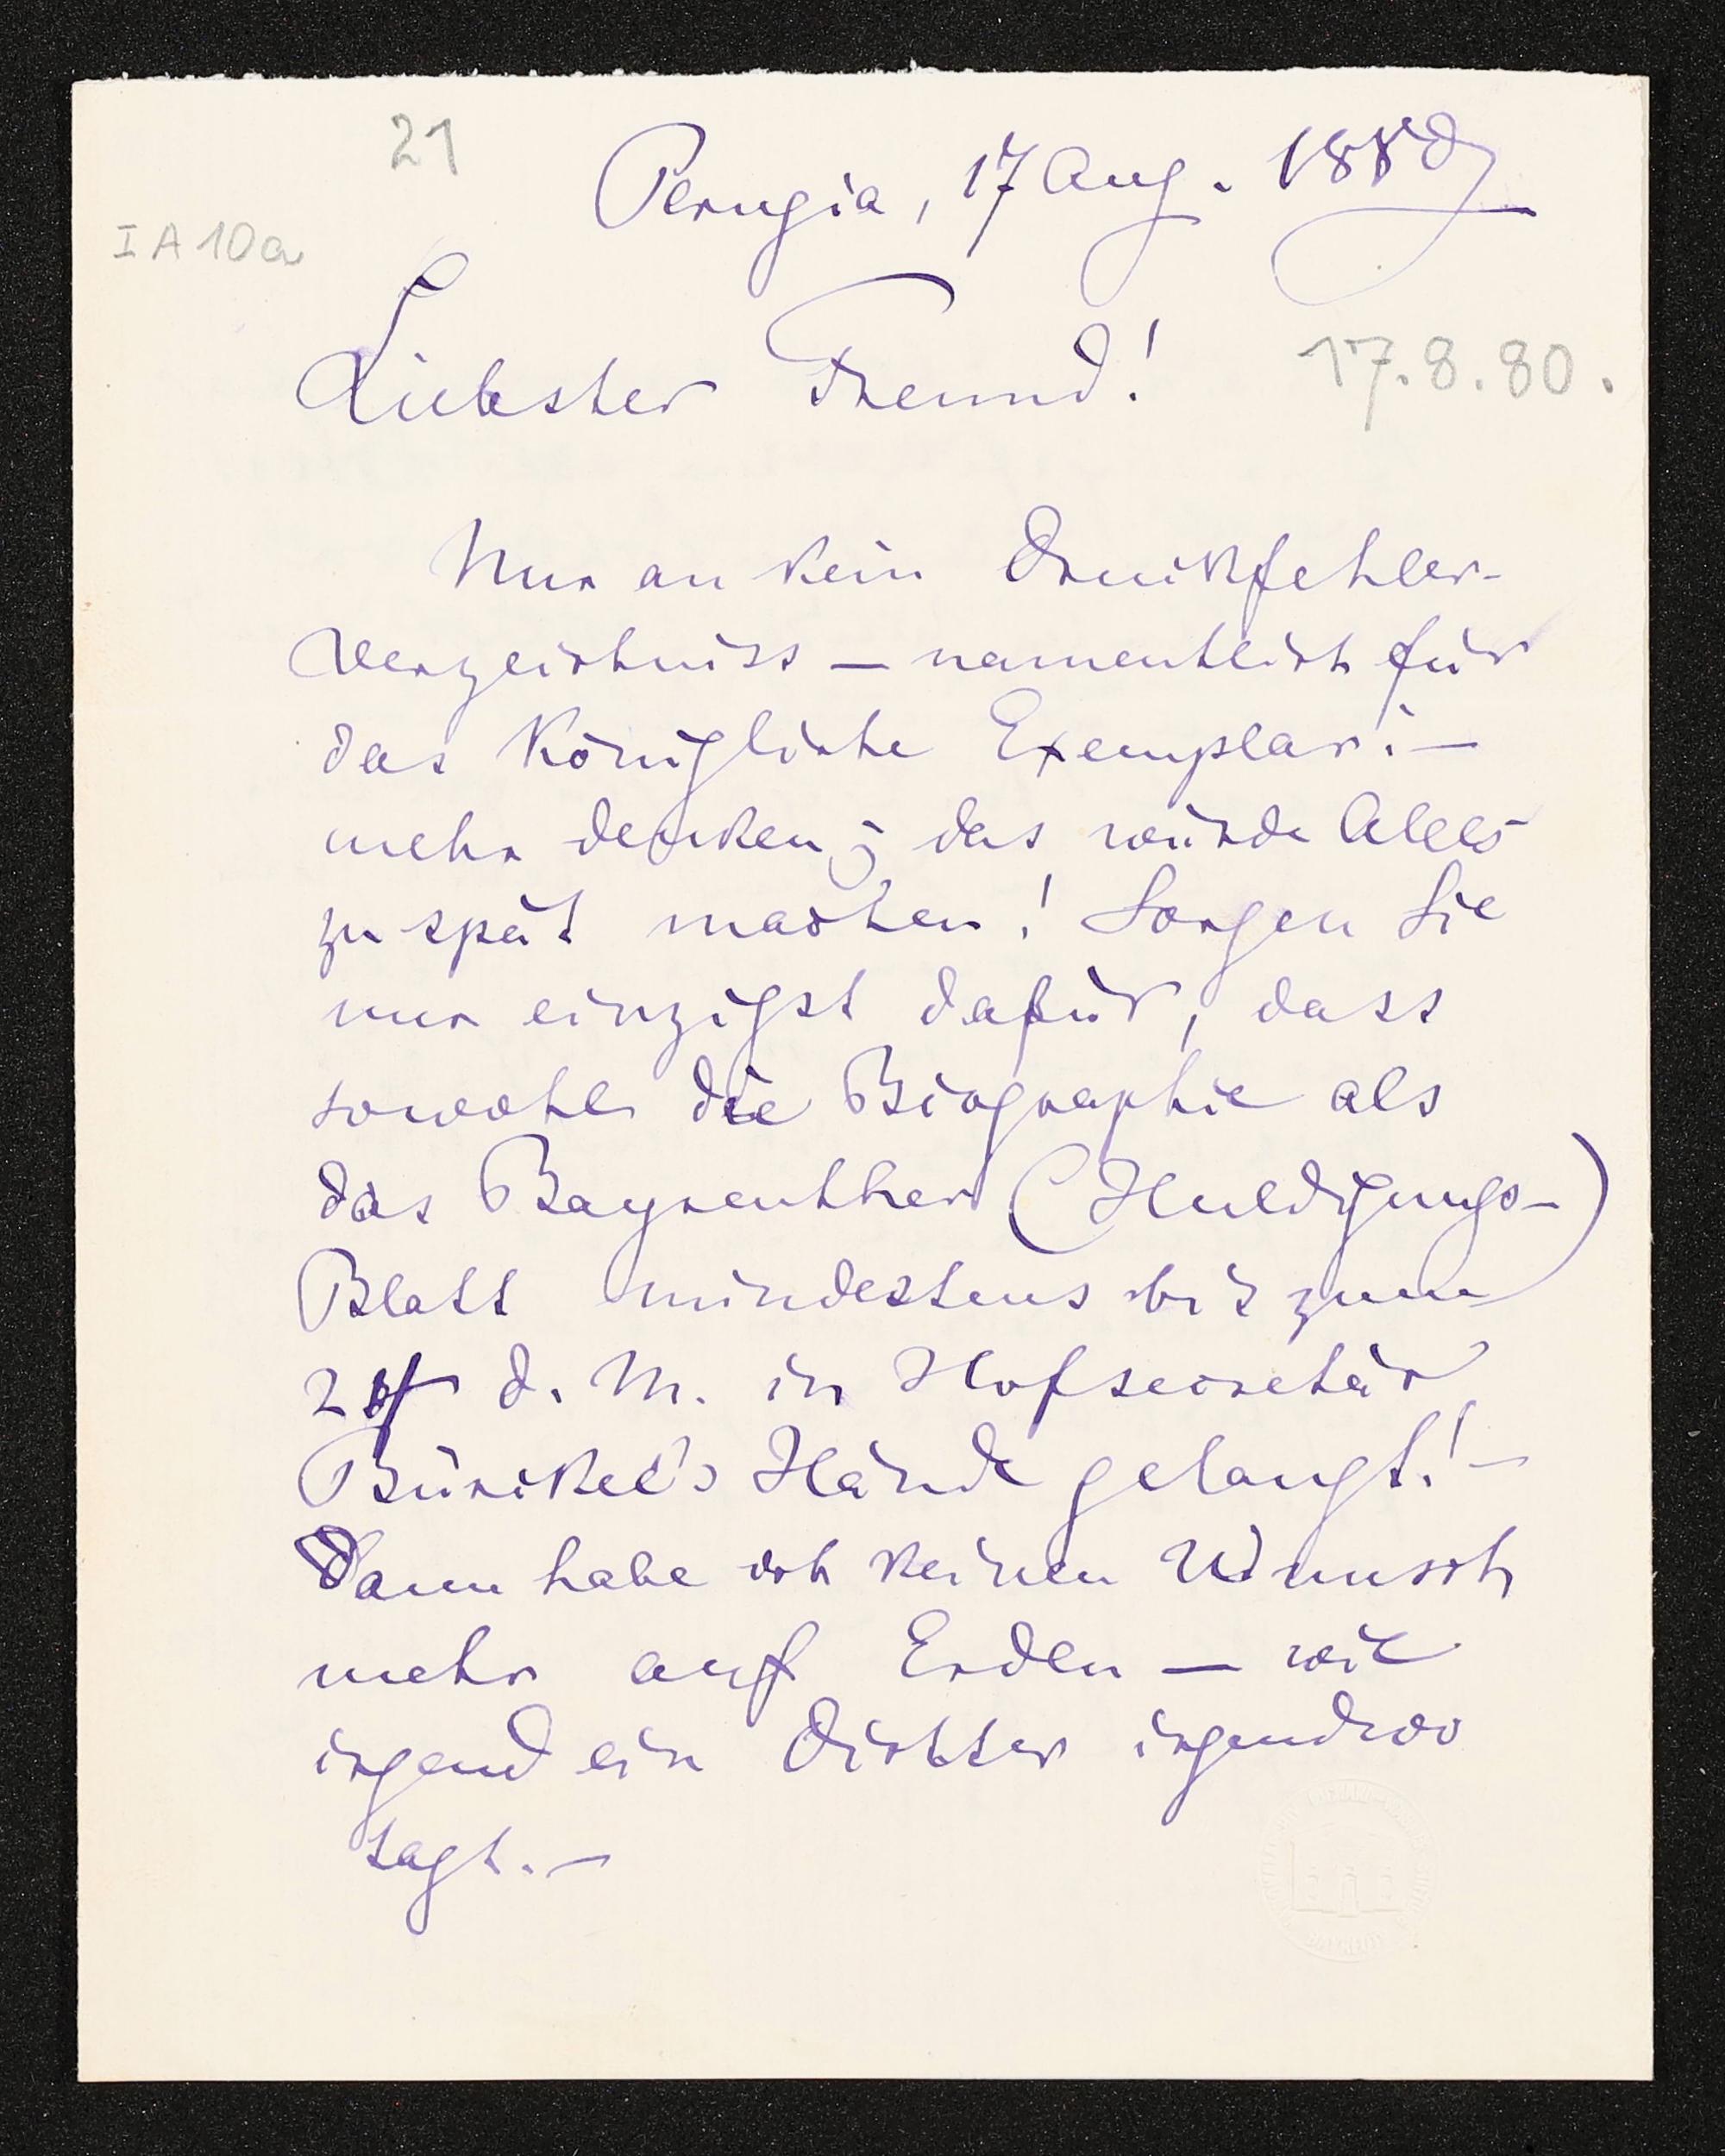 21
Perugia, 17 Aug. 1880
I A 10a
Liebster Freund!
17.8.80.
Nur an kein Druckfehler-
verzeichniss — namentlich für
das Königliche Exemplar! —
mehr denken; das würde Alles
zu spät machen! Sorgen Sie
nur einzigst dafür, dass
sowohl die Biographie als
das Bayreuther (Huldigungs-)
Blatt mindestens bis zum
24 d. M. in Hofsecretär
Bürckel's Hände gelangt! —
Dann habe ich keinen Wunsch
mehr auf Erden — wie
irgend ein Dichter irgendwo
sagt. —